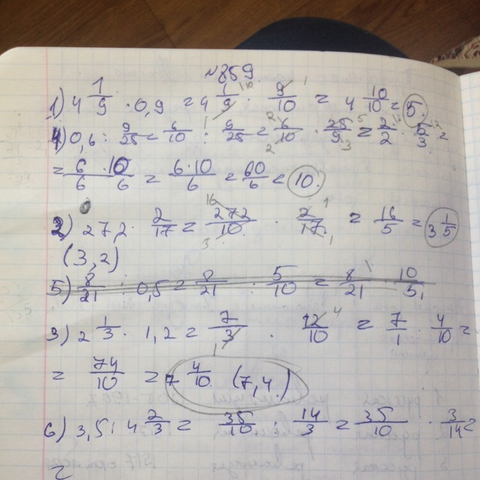 №859.
1) 4 1/9 · 0,9 = 4 1/9 · 9/10 = 4 10/10 = 5.
4) 0,6 : 9/25 = 6/10 : 9/25 = 6/10 · 25/9 = 2/2 · 5/3 =
= 6 · 10 / 6 6 = 6·10/6 = 60/6 = 10.
2) 27,2 · 2/17 = 272/10 · 2/17 = 16/5 = 3 1/5
(3,2)
5) 8/21 · 0,5 = 8/21 · 5/10 = 8/21 10/5
3) 2 1/3 · 1,2 = 7/3 · 12/10 = 7/1 · 4/10 =
= 74/10 = 7 4/10 (7,4)
6) 3,5 : 4 2/3 = 35/10 : 14/3 = 35/10 · 3/14 =
=